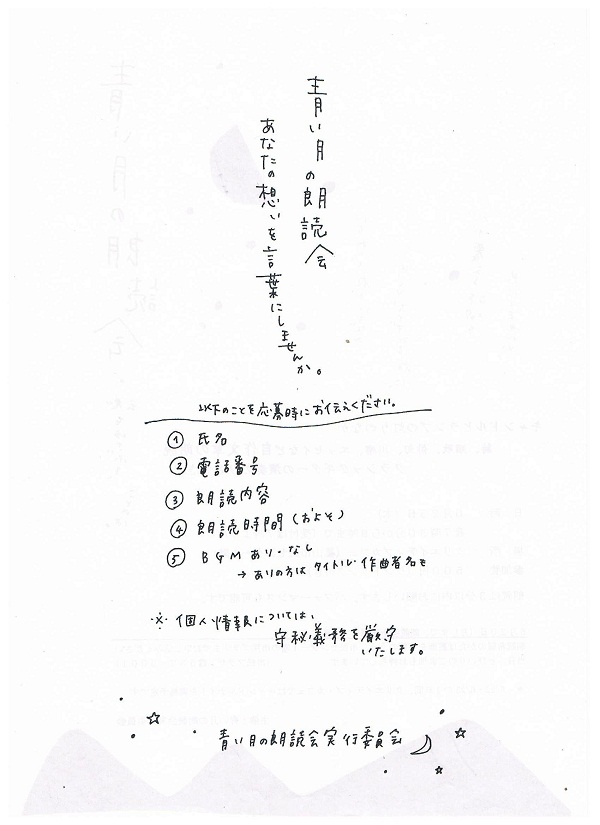 青い月の朗読会
あなたの想いを言葉にしませんか。
以下のことを応募時にお伝えください。
① 氏名
② 電話番号
③ 朗読内容
④ 朗読時間(およそ)
⑤ BGMあり・なし
→ありの方はタイトル・作曲者名も
※ 個人情報については、
守秘義務を厳守
いたします。
青い月の朗読会実行委員会